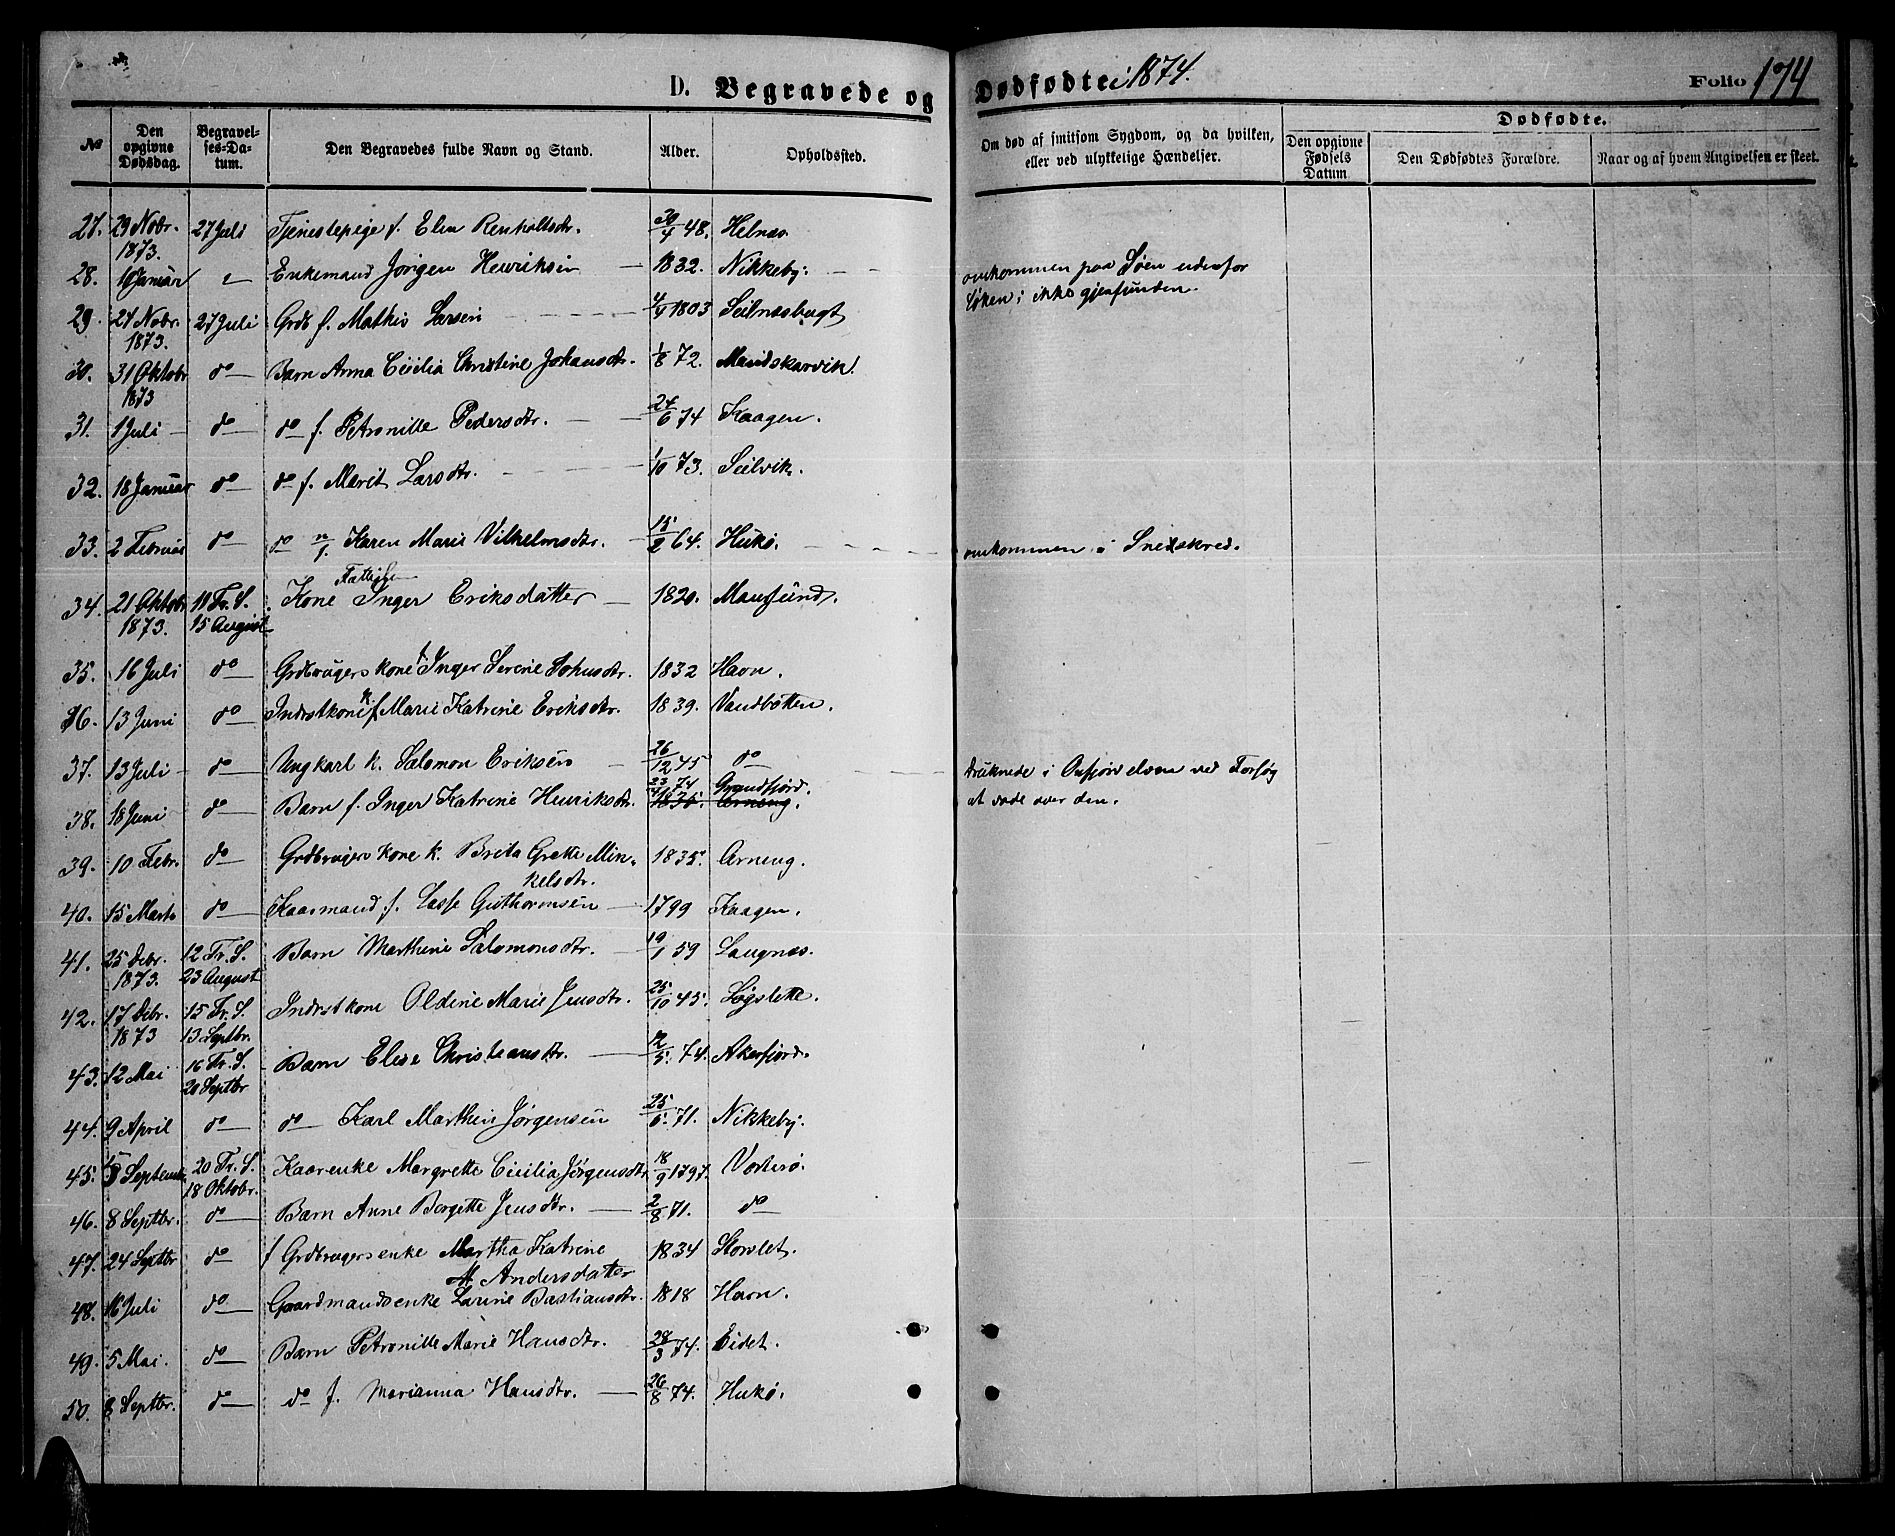 D. Begravede og Dødfødte i 1874. Folio 174
No
Den opgivne Dødsdag.
Begravelses-Datum.
Den Begravedes fulde Navn og Stand.
Alder.
Opholdssted.
Om død af smitsom Sygdom, og da hvilken, eller ved ulykkelige Hændelser.
Dødfødte.
Den opgivne Fødsels Datum
Den Dødfødtes Forældre.
Naar og af hvem Angivelsen er skeet.
27. 29 Nobr. 1873. 27 Juli Tjenestepige f. Elen Renholtsdr. 30/4 48. Helnæs
28. 10 Januar " Enkemand Jørgen Henriksen 1832. Nikkeby. omkommen paa Søen udenfor
Løken; ikke gjenfunden.
29. 24 Nobr. 1873. 27 Juli Grdb f. Mathis Larsen 4/4 1803 Seilnæsbugt
30. 31 Oktobr 1873 do Barn Anna Cicilia Christine Johansdtr. 1/8 72. Mandskarvik.
31. 1 Juli do do f. Petronille Pedersdtr. 24/6 74 Kaagen.
32. 18 Januar do do f. Marit Larsdtr. 1/10 73. Seilvik.
33. 2 Februar do do n/f. Karen Marie Vilhelmsdtr. 15/2 64. Hukø. omkommen i Sneeskred.
34. 21 Oktobr 1873. 11 Tr. S. 15 August Fattiglem
Kone Inger Eriksdatter 1820. Mansund.
35. 16 Juli do Grdbrugers kone f Inger Serine Johnsdtr. 1832 Havn.
36. 13 Juni do Indrstkone k f Marie Katrine Eriksdtr. 1839. Vandbotten.
37. 13 Juli do Ungkarl k. Salomon Eriksen 26/12 45 do druknede i Oxfjordelven ved Forsøg
at vade over den.
38. 18 Juni do Barn f. Inger Katrine Henriksdtr. 23/4 74 1835. Grundfjord. Arneng.
39. 10 Febr. do Grdbrugers kone k. Brita Grette Min-
kelsdtr. 1835. Arneng.
40. 15 Marts do Kaarmand f. Lasse Guthormsen 1799 Kaagen.
41. 25 Debr. 1873. 12 Tr. S. 23 August Barn Marthine Salomonsdtr. 19/1 59 Laugnæs.
42. 17 Debr. 1873 15 Tr. S. 13 Septbr. Indrstkone Oldine Marie Jensdtr. 25/10 45. Løgslette.
43. 12 Mai 16 Tr. S. 20 Septbr Barn Elise Christiansdtr. 12/5. 74. Akerfjord.
44. 9 April do do Karl Marthin Jørgensen 25/5. 71. Nikkeby.
45. Septembr 20 Tr. S. 18 Oktobr. Kaarenke Margrette Cicilia Jørgensdtr 18/9 1797. Vorterø.
46. 8 Septbr. do Barn Anne Borgette Jensdtr. 2/8 71. do
47. 24 Septbr do f Grdbrugersenke Martha Katrine
M. Andersdatter 1834 Storslet.
48. 16 Juli do Gaardmandsenke Larine Bastiansdtr. 1818 Havn.
49. 5 Mai. do Barn Petronille Marie Hansdtr. 28/3 74. Eidet.
50. 8 Septbr. do do f. Marianna Hansdtr. 26/8 74. Hukø.